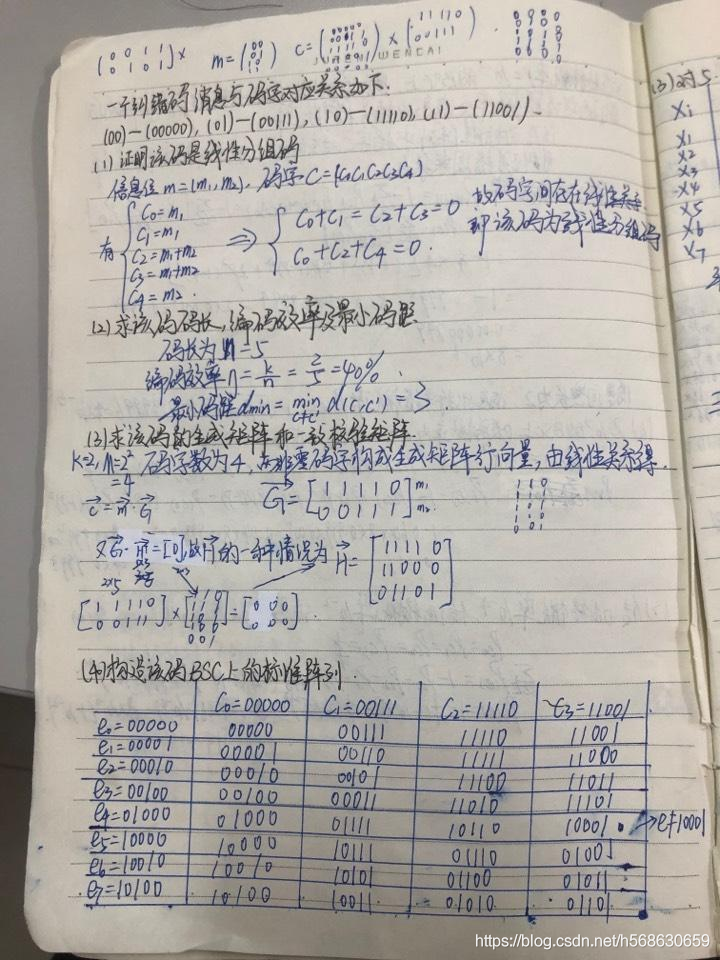 (0 0 1 1 / 0 1 0 1) × m = (00 / 01 / 10 / 11) C = × (11110 / 00111)
一个纠错码消息与码字对应关系如下.
(00)—(00000), (01)—(00111), (10)—(11110), (11)—(11001).
(1) 证明该码是线性分组码
信息位 m=(m1, m2), 码字 C=(C0C1C2C3C4)
有 { C0=m1
C1=m1
C2=m1+m2
C3=m1+m2
C4=m2.
⇒ { C0+C1=C2+C3=0
C0+C2+C4=0.
故码字间存在线性关系
即该码为线性分组码
(2) 求该码码长, 编码效率及最小码距
码长为 n=5
编码效率 η = k/n = 2/5 = 40%.
最小码距 dmin = min d(C,C') = 3
C≠C'
(3) 求该码的生成矩阵和一致校验矩阵.
K=2, M=2² 码字数为4, 非零码字构成生成矩阵行向量, 由线性关系得.
=4
C=m·G
G = [1 1 1 1 0 / 0 0 1 1 1] m1 m2
=[0], 故H的一种情况为 H = [1111 0 / 11000 / 01101]
2×5
[1 1 1 1 0 / 0 0 1 1 1] × = [0 0 0 / 0 0 0].
(4) 构造该码BSC上的标准阵列.
C0=00000 C1=00111 C2=11110 C3=11001
e0=00000 00000 00111 11110 11001
e1=00001 00001 00110 11111 11000
e2=00010 00010 00101 11100 11011
e3=00100 00100 00011 11010 11101
e4=01000 01000 01111 10110 10001 → e≠10001
e5=10000 10000 10111 01110 01001
e6=10010 10010 10101 01100 01011
e7=10100 10100 10011 01010 01101
(3) 对 S
Xi
X1
X2
X3
X4
X5
X6
X7
https://blog.csdn.net/h568630659